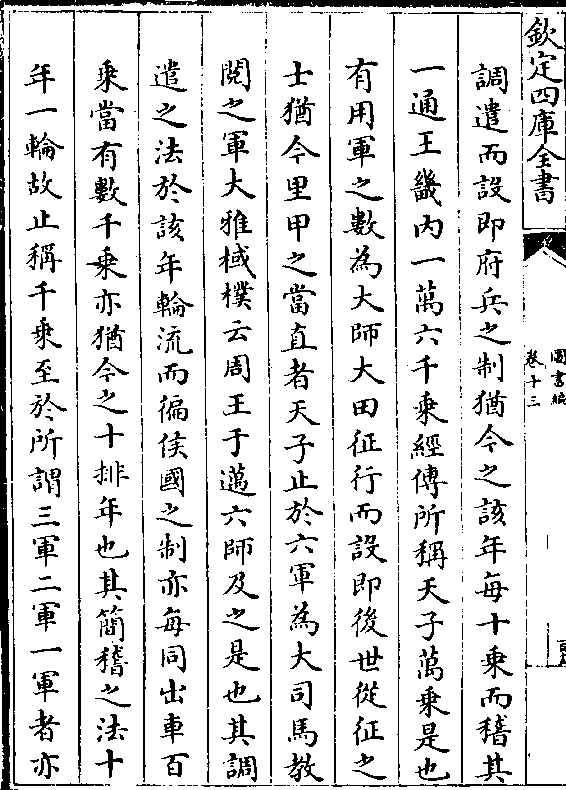 欽定四庫全書
圖書編
卷十三
調遣而設即府兵之制猶今之該年每十乘而稽其
一通王畿内一萬六千乘經傳所稱天子萬乘是也
有用軍之數為大師大田征行而設即後世從征之
士猶今里甲之當直者天子止於六軍為大司馬教
閱之軍大雅棫樸云周王于邁六師及之是也其調
遣之法於該年輪流而徧侯國之制亦每同出車百
乘當有數千乘亦猶今之十排年也其簡稽之法十
年一輪故止稱千乘至於所謂三軍二軍一軍者亦